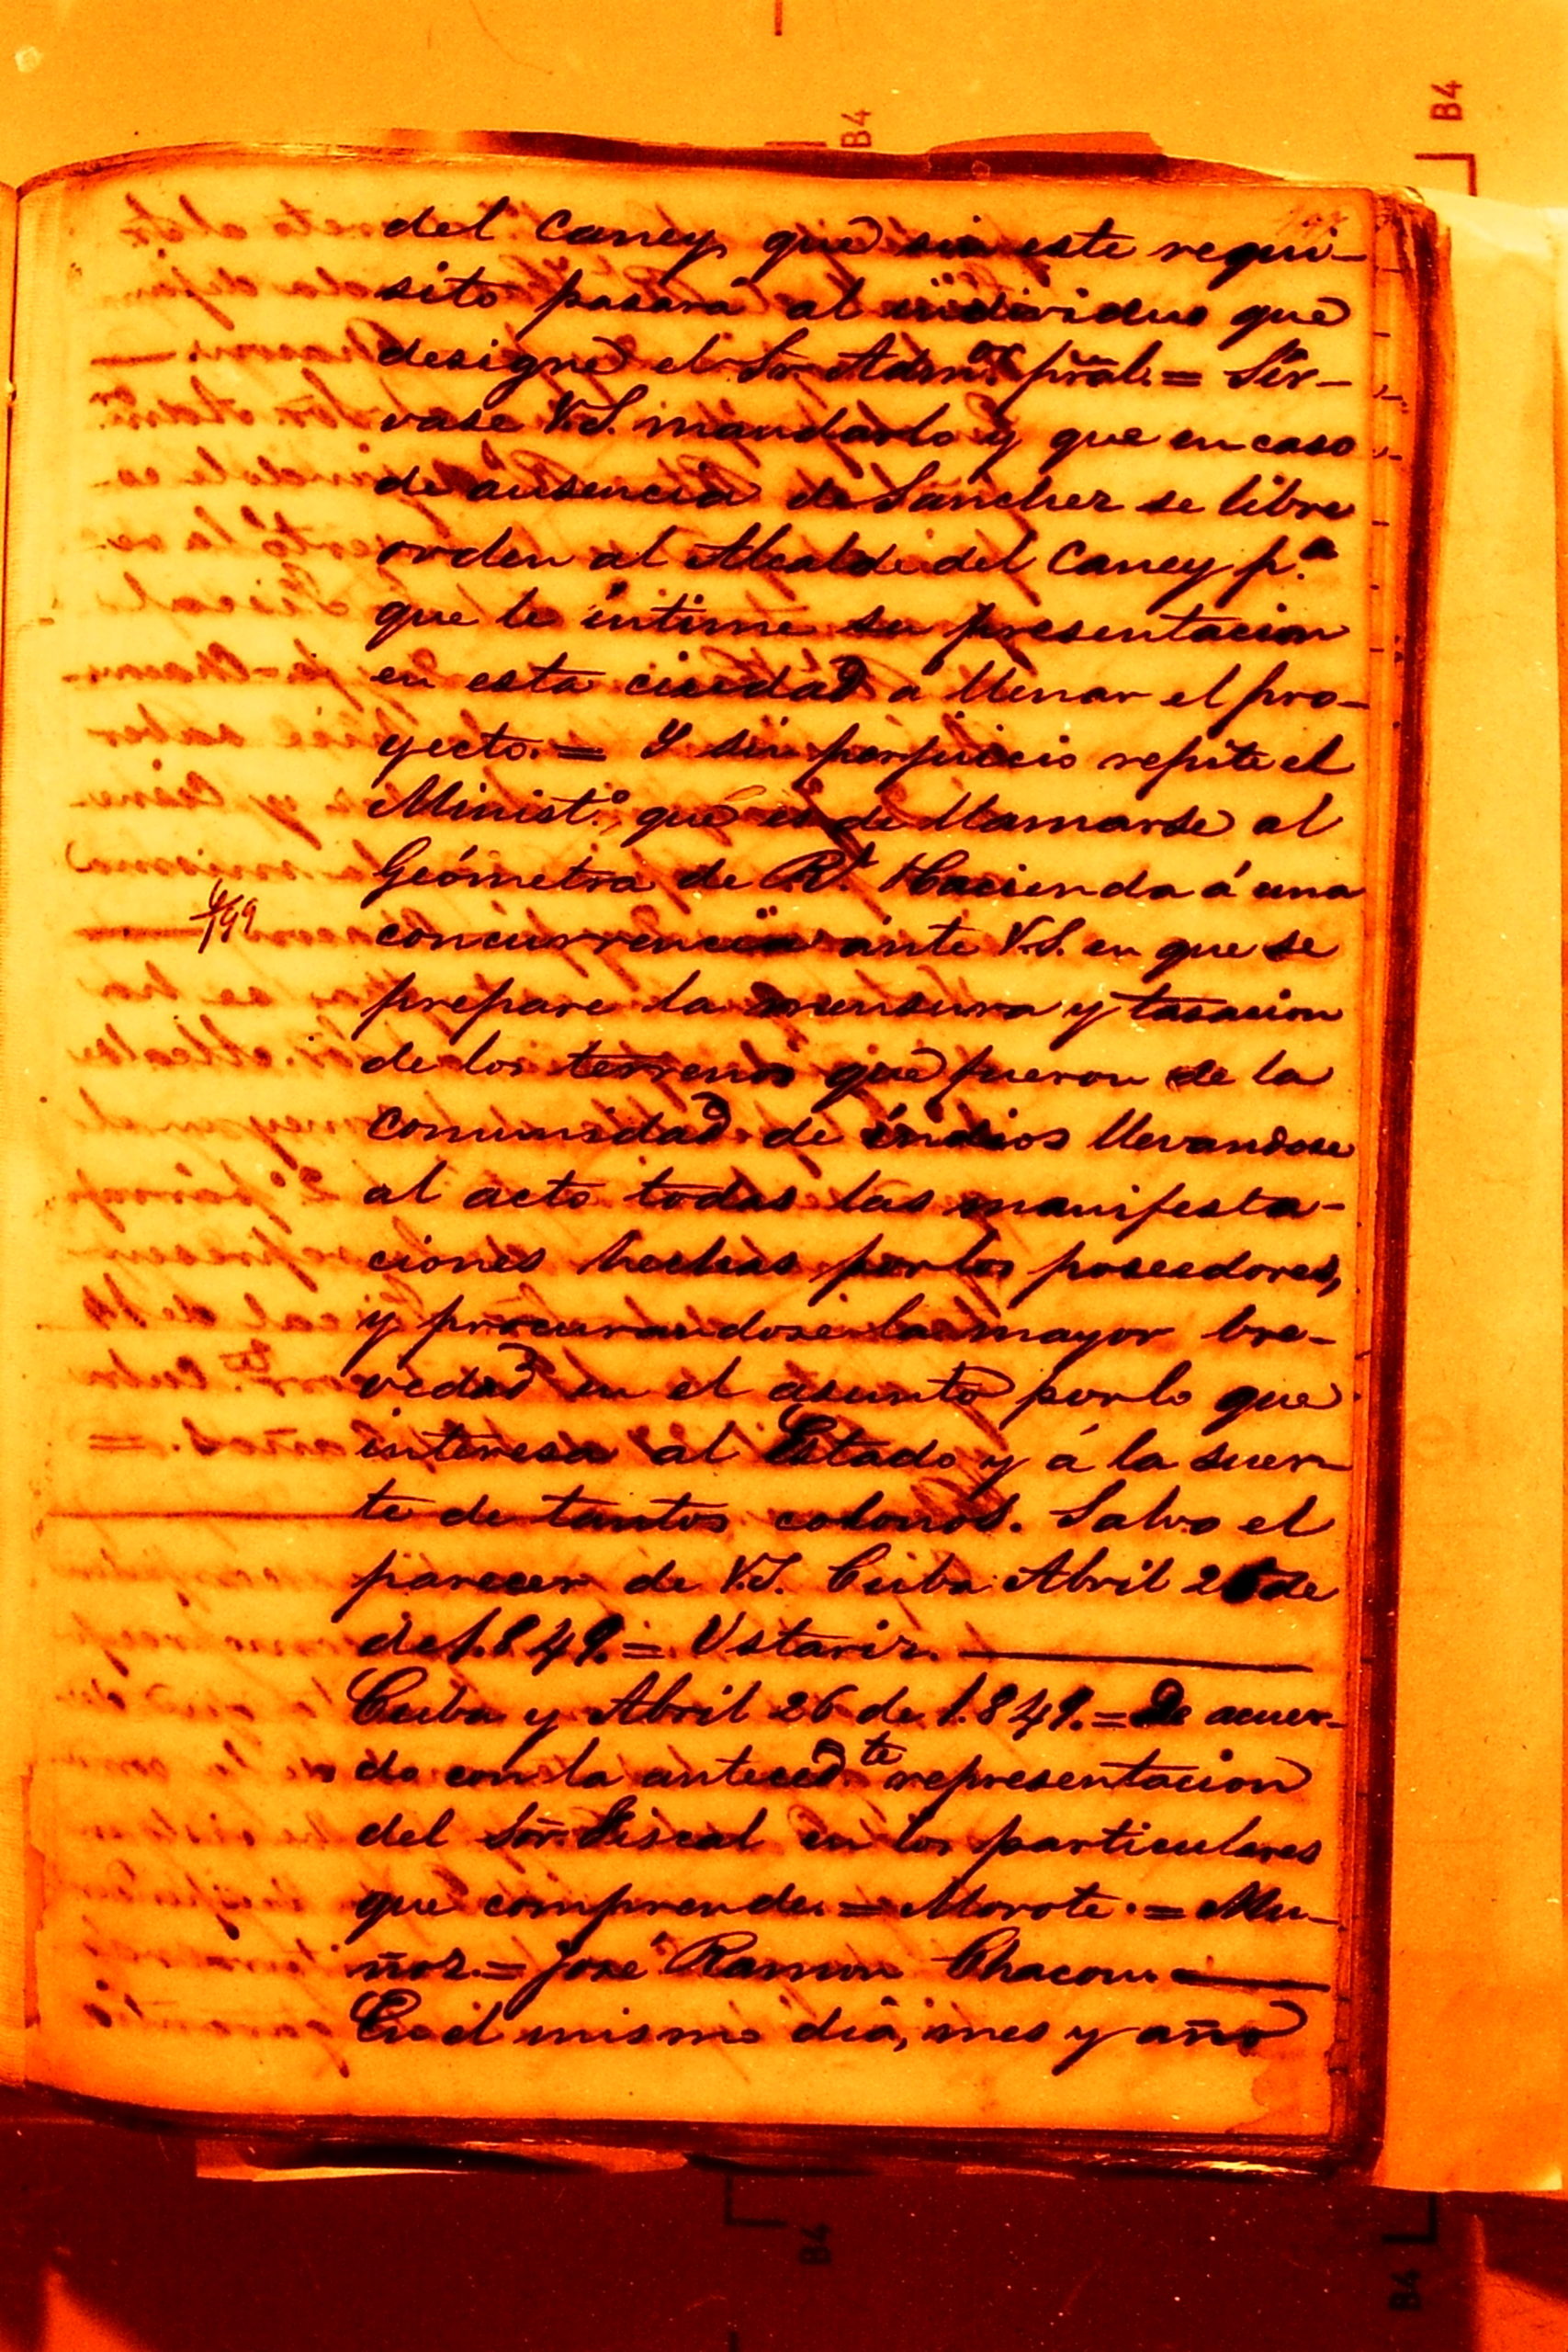 del Caney, que sin este requi-
sito pasará al individuo que
designe el Sr. Admor. pral. = Sír-
vase V.S. mandarlo y que en caso
de ausencia de Sanchez se libre
orden al Alcalde del Caney p.ª
que le intime su presentacion
en esta ciudad a llenar el pro-
yecto. = Y sin perjuicio repite el
Minist.º, que es de llamarse al
Geómetra de R.l Hacienda á una
4/99
concurrencia ante V.S. en que se
prepare la mensura y tasacion
de los terrenos que fueron de la
comunidad de indios llevandose
al acto todas las manifesta-
ciones hechas por los poseedores,
y procurandose la mayor bre-
vedad en el asunto por lo que
interesa al Estado y á la suer-
te de tantos colonos. Salvo el
parecer de V.S. Cuba Abril 26 de
de 1.849. = Ustariz.
Cuba y Abril 26 de 1.849. = De acuer-
do con la anteced.te representacion
del Sõr. Fiscal en los particulares
que comprende. = Morote. = Mu-
ñoz. = José Ramon Chacon.
En el mismo dia, mes y año
B4
B4
B4
B4